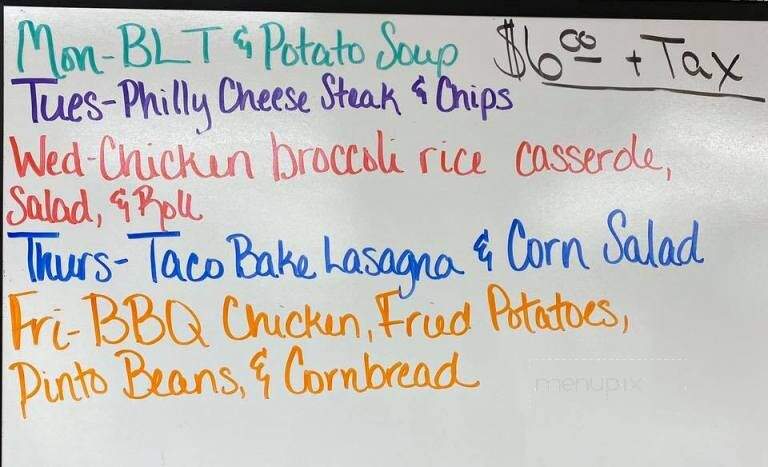 Mon-BLT & Potato Soup $6.00 + Tax
Tues-Philly Cheese Steak & Chips
Wed-Chicken broccoli rice casserole,
Salad, & Roll
Thurs-Taco Bake Lasagna & Corn Salad
Fri-BBQ Chicken, Fried Potatoes,
Pinto Beans, & Cornbread
menupix